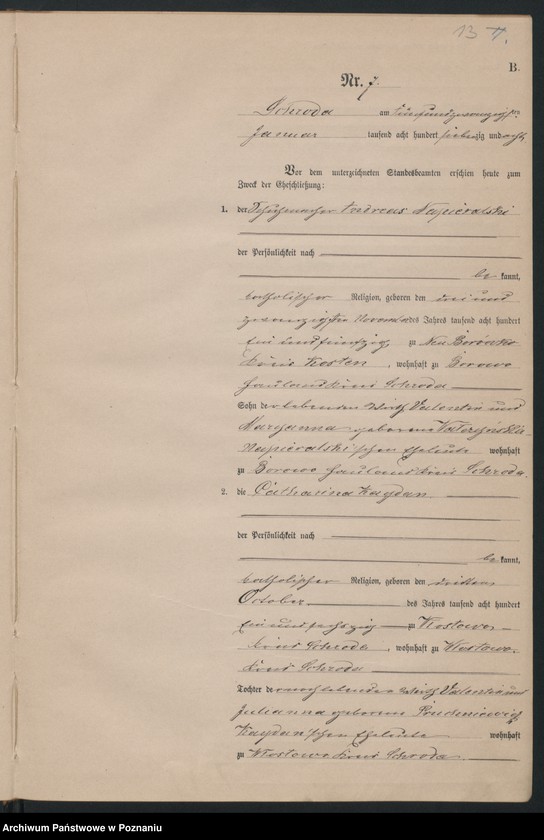 13
B.
Nr. 7.
Schroda am fünfundzwanzigsten
Januar tausend acht hundert siebenzig und acht
Vor dem unterzeichneten Standesbeamten erschien heute zum
Zweck der Eheschließung:
1. der Schuhmacher Andreas Napieralski
der Persönlichkeit nach
be kannt,
katholischer Religion, geboren den drei und
zwanzigsten November des Jahres tausend acht hundert
ein und fünfzig, zu Neu
Kreis Kosten, wohnhaft zu Borowo
Hauland Kreis Schroda
Sohn der lebenden Wirth Valentin und
Maryanna geborene
Napieralski'schen Eheleute wohnhaft
zu Borowo Hauland Kreis Schroda.
2. die Catharina Kaydan
der Persönlichkeit nach
be kannt,
katholischer Religion, geboren den dritten
October des Jahres tausend acht hundert
ein und sechszig zu
Kreis Schroda, wohnhaft zu
Kreis Schroda
Tochter der noch lebenden Wirth Valentin und
Julianna geborene
Kaydan'schen Eheleute wohnhaft
zu Kreis Schroda.
Archiwum Państwowe w Poznaniu